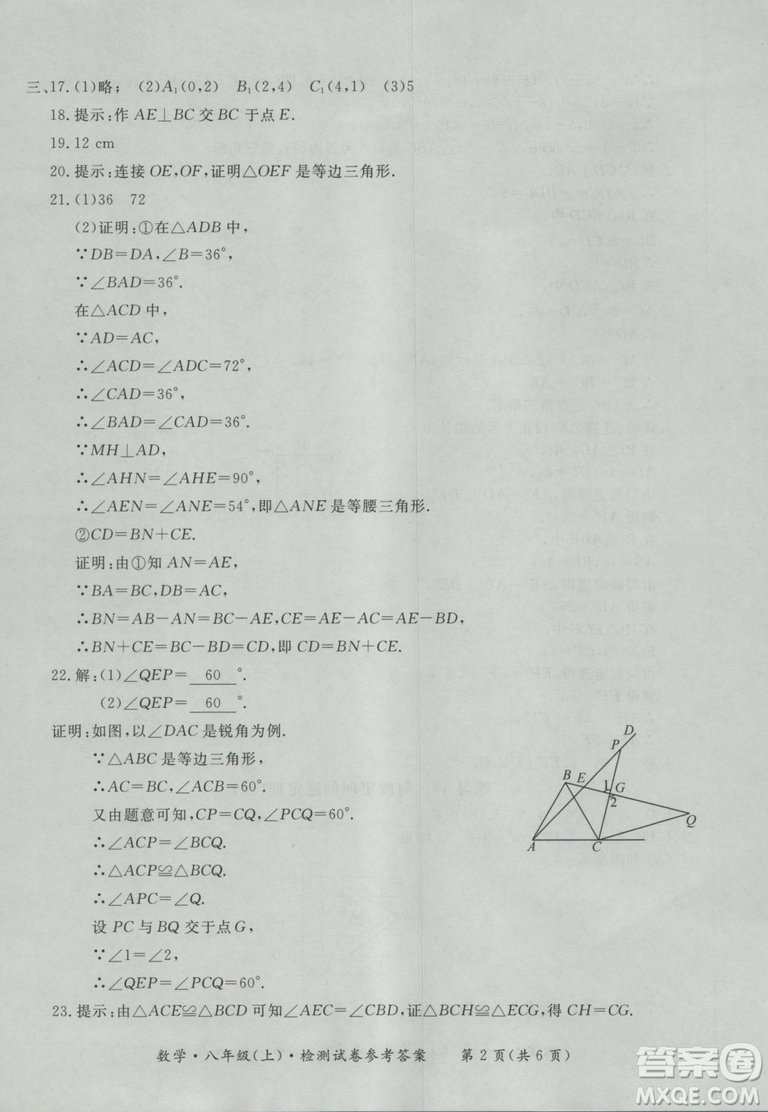 三、17.(1)略； (2)A₁(0,2) B₁(2,4) C₁(4,1) (3)5
18.提示:作AE⊥BC交BC于点E.
19.12 cm
20.提示:连接OE,OF,证明△OEF是等边三角形.
21.(1)36 72
(2)证明:①在△ADB中,
∵DB=DA,∠B=36°,
∵∠BAD=36°.
在△ACD中,
∵AD=AC,
∴∠ACD=∠ADC=72°,
∴∠CAD=36°.
∴∠BAD=∠CAD=36°.
∵MH⊥AD,
∴∠AHN=∠AHE=90°,
∴∠AEN=∠ANE=54°,即△ANE是等腰三角形.
②CD=BN+CE.
证明:由①知AN=AE,
∵BA=BC,DB=AC,
∴BN=AB-AN=BC-AE,CE=AE-AC=AE-BD,
∴BN+CE=BC-BD=CD,即CD=BN+CE.
22.解:(1)∠QEP= 60 °.
(2)∠QEP= 60 °.
证明:如图,以∠DAC是锐角为例.
∵△ABC是等边三角形,
∴AC=BC,∠ACB=60°.
又由题意可知,CP=CQ,∠PCQ=60°.
∴∠ACP=∠BCQ.
∴△ACP≌△BCQ.
∴∠APC=∠Q.
设PC与BQ交于点G,
∵∠1=∠2,
∴∠QEP=∠PCQ=60°.
D
P
B E 1 G
2
Q
A C
23.提示:由△ACE≌△BCD可知∠AEC=∠CBD,证△BCH≌△ECG,得CH=CG.
数学·八年级(上)·检测试卷参考答案 第2页(共6页)
答案圈
MXQE.COM